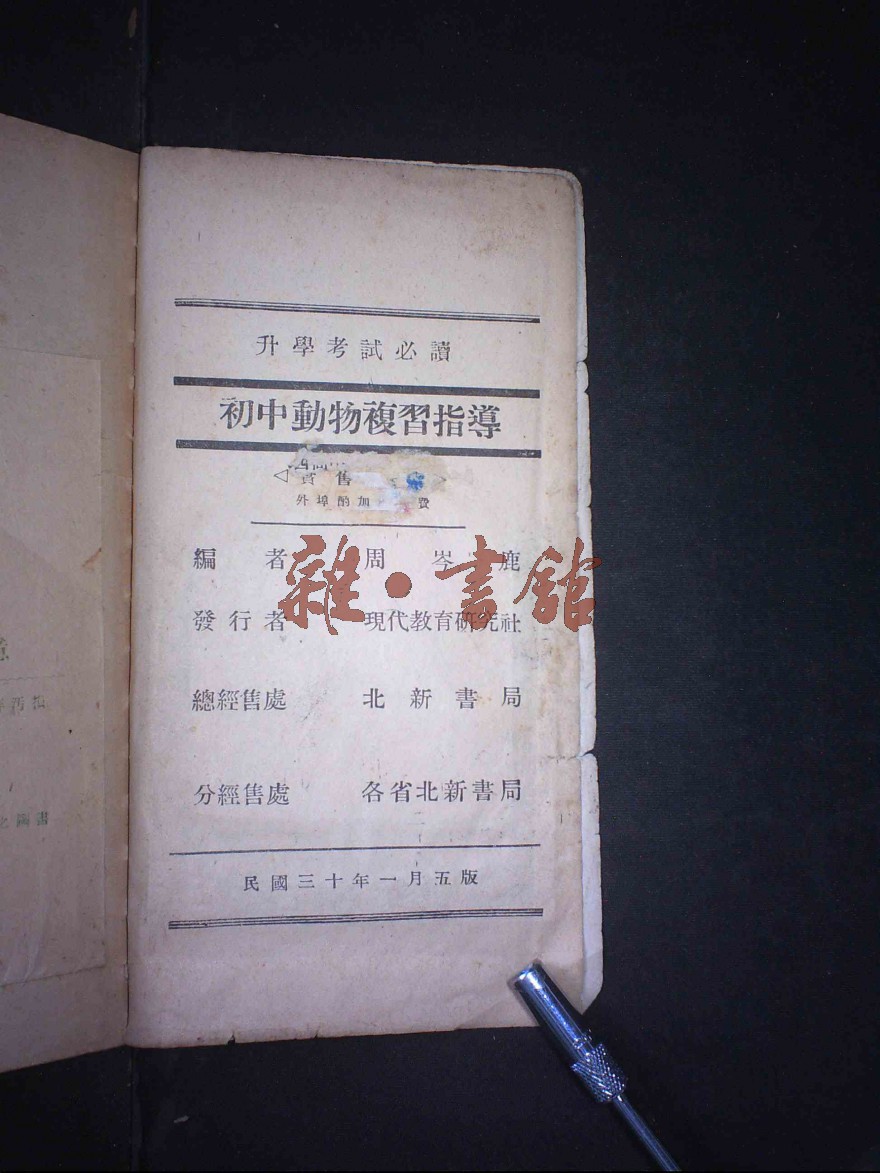 升學考試必讀
初中動物複習指導
實售
外埠酌加 費
編者 周岑鹿
發行者 現代教育研究社
總經售處 北新書局
分經售處 各省北新書局
民國三十年一月五版
雜·書館